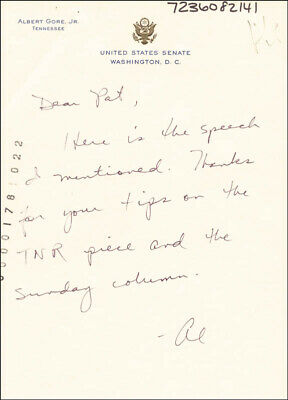 7236082141
ALBERT GORE, JR.
TENNESSEE
UNITED STATES SENATE
WASHINGTON, D. C.
Dear Pat,
Here is the speech
I mentioned. Thanks
for your tips on the
TNR piece and the
Sunday column.
- Al
000178 022